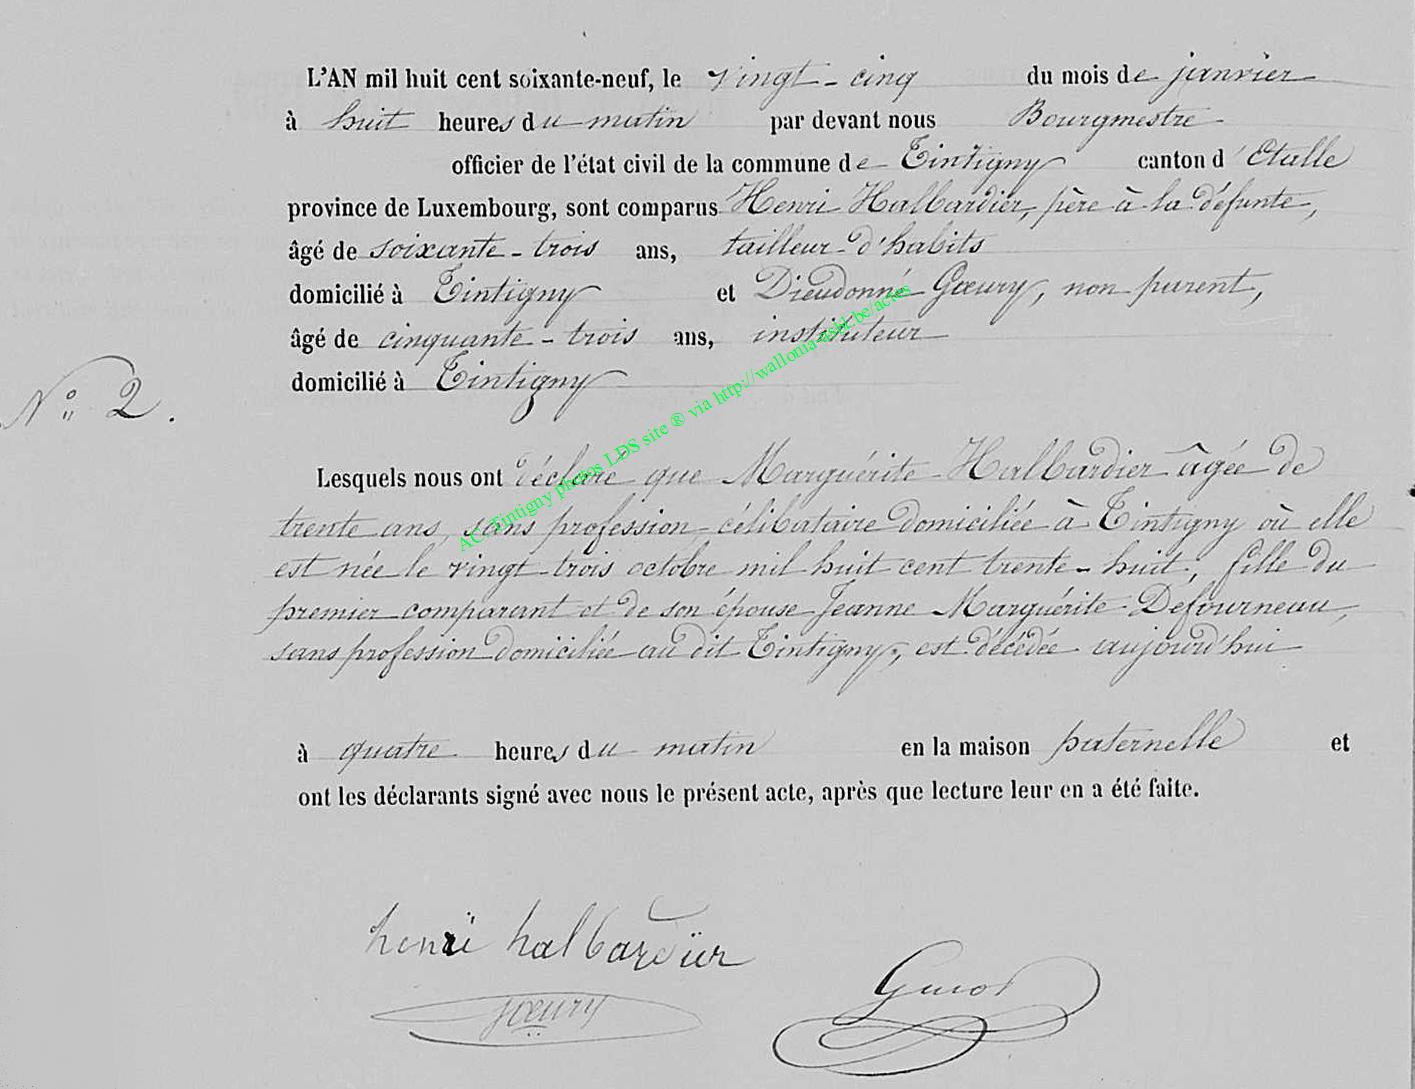 L'AN mil huit cent soixante-neuf, le vingt-cinq du mois de janvier
à huit heures du matin par devant nous Bourgmestre
officier de l'état civil de la commune de Tintigny canton d'Etalle
province de Luxembourg, sont comparus Henri Halbardier, père à la défunte,
âgé de soixante-trois ans, tailleur d'habits
domicilié à Tintigny et Dieudonné Goeury, non parent,
âgé de cinquante-trois ans, instituteur
domicilié à Tintigny
N° 2.
Lesquels nous ont déclaré que Marguérite Halbardier âgée de
trente ans, sans profession célibataire domiciliée à Tintigny où elle
est née le vingt-trois octobre mil huit cent trente-huit, fille du
premier comparant et de son épouse Jeanne Marguérite Defourneau,
sans profession domiciliée au dit Tintigny, est décédée aujourd'hui
à quatre heures du matin en la maison paternelle et
ont les déclarants signé avec nous le présent acte, après que lecture leur en a été faite.
henri halbardïer
Goeury
AC Tintigny photos LDS site ® via http://wallonia-asbl.be/actes